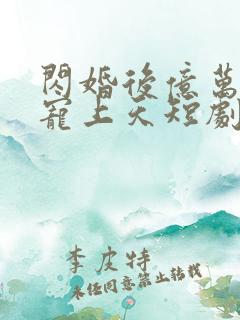 閃婚後億萬
寵上天短劇
李皮特
未經同意禁止轉載